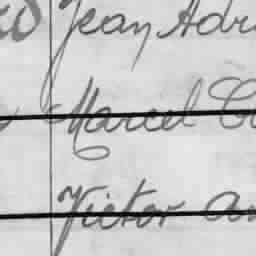 Jean Adr
Marcel
Victor